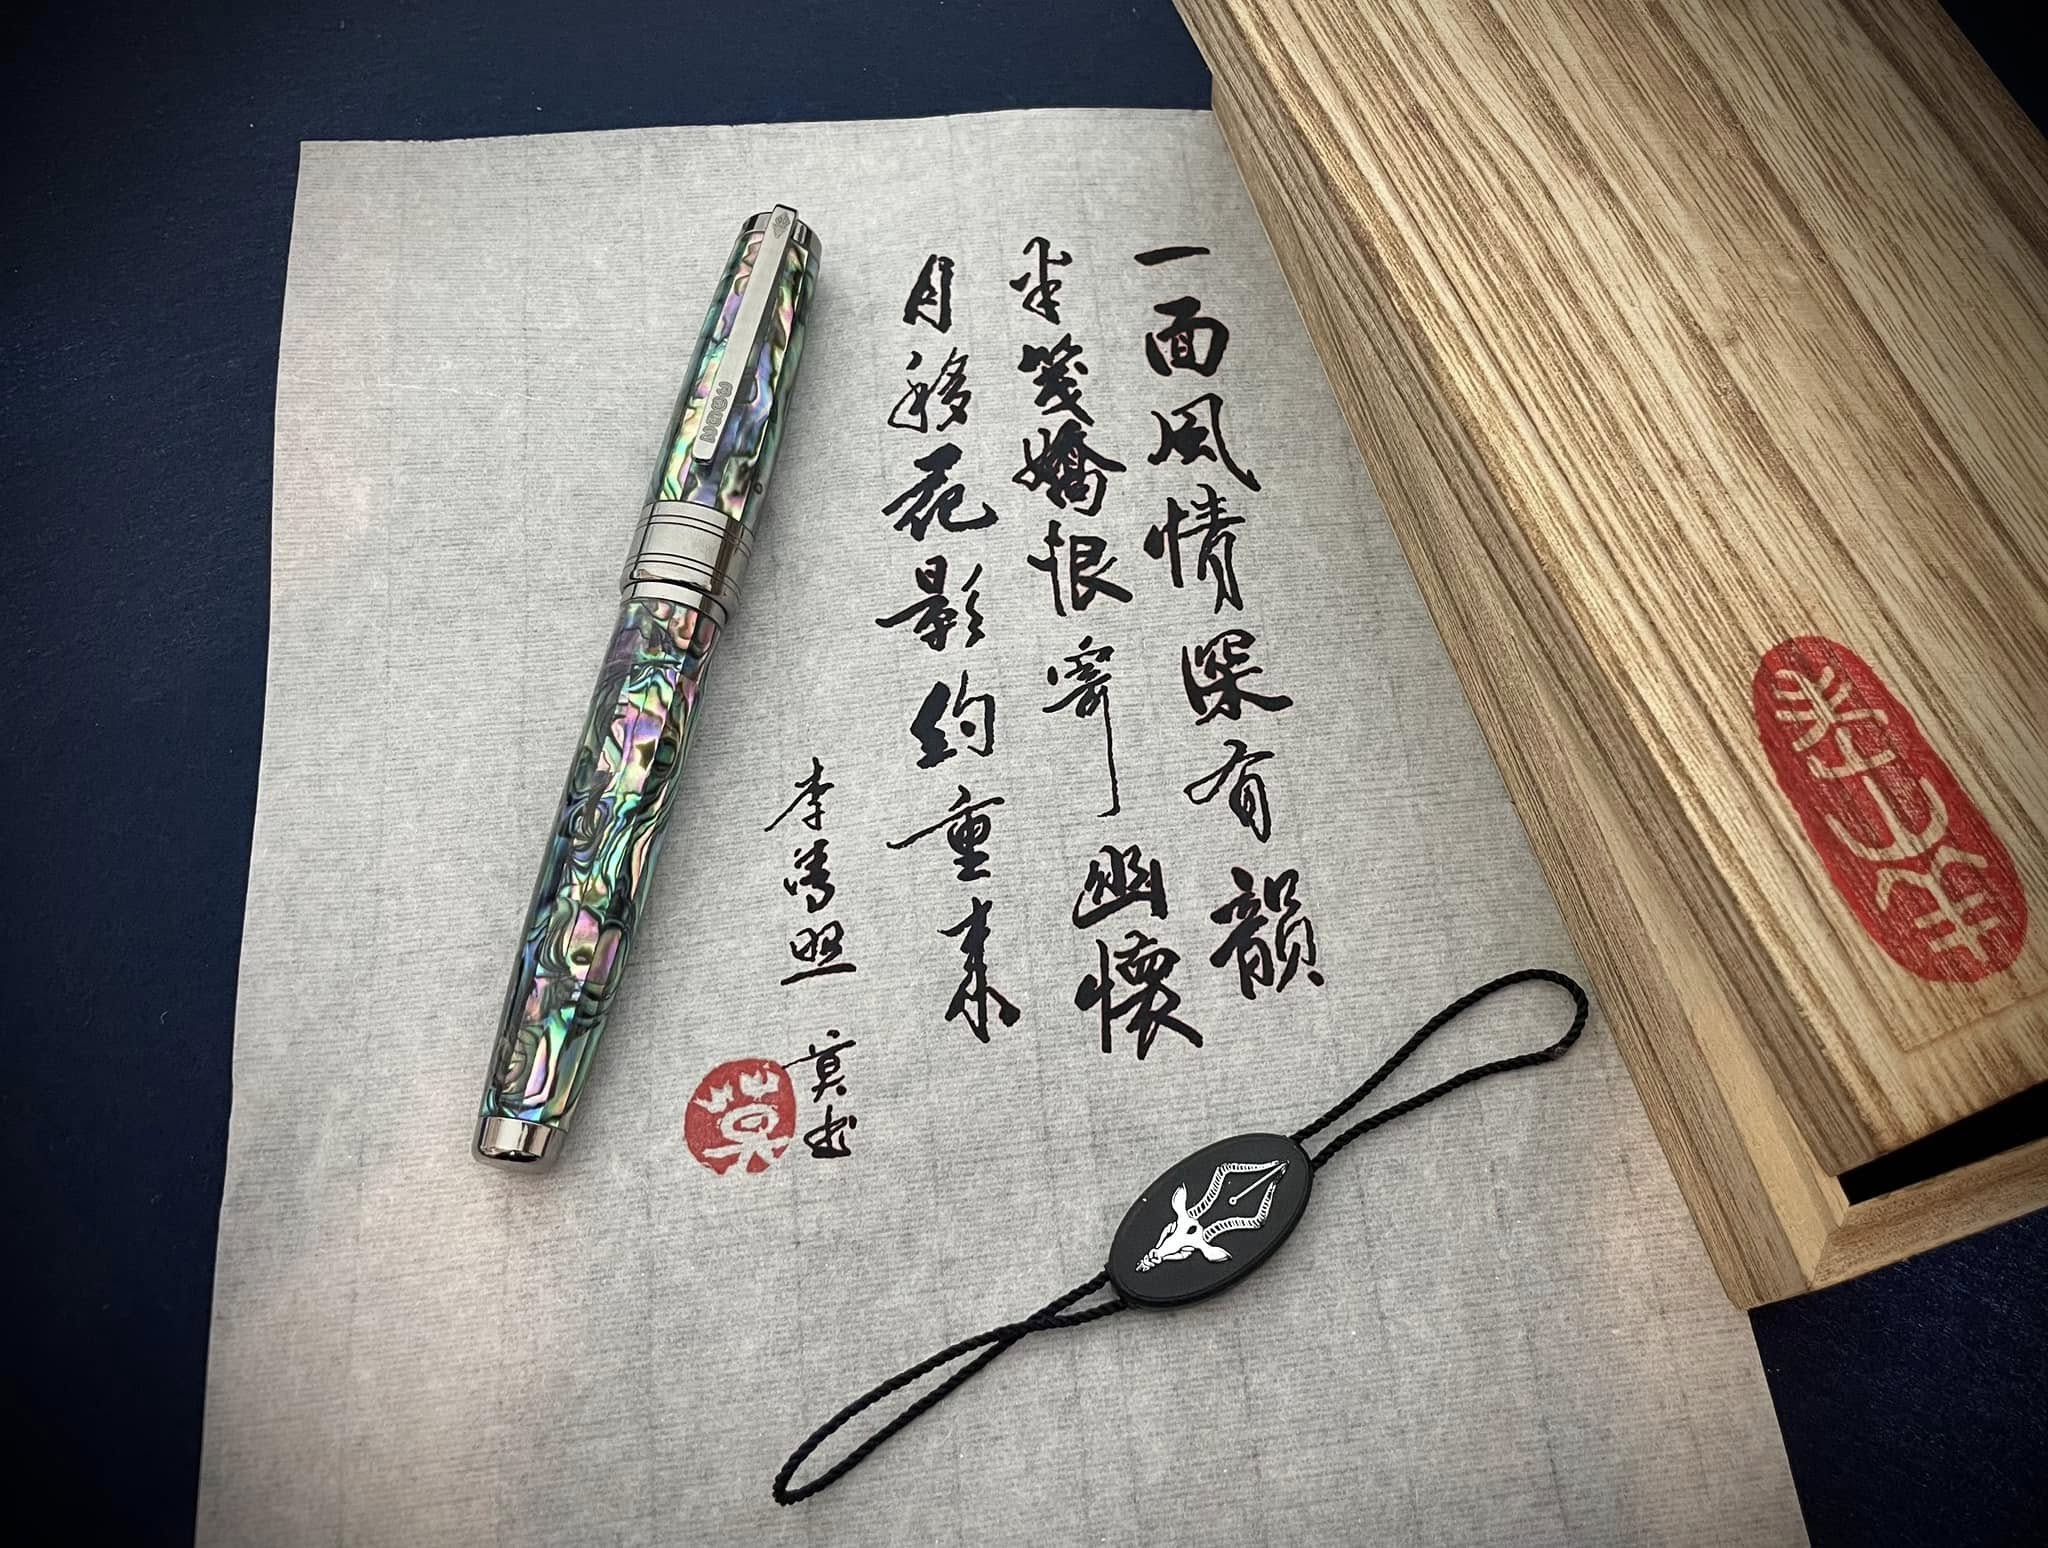 一面風情深有韻
半箋嬌恨寄幽懷
月移花影約重來
李清照 莫书